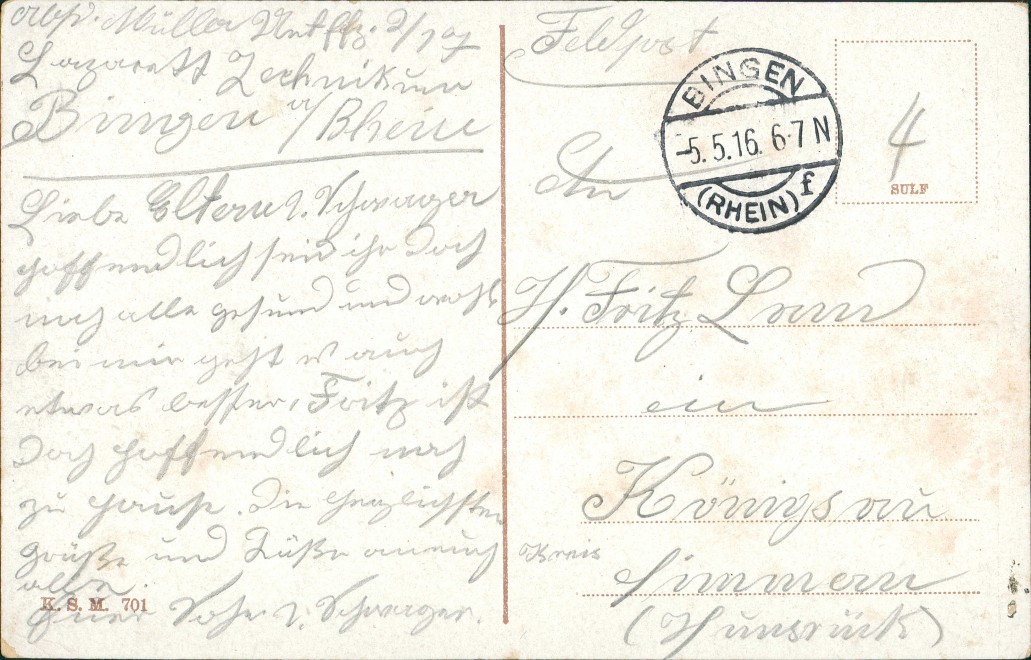 Abs. Müller Untffz. 2/
Lazarett Technikum
Bingen a/Rhein
Liebe Eltern u. Schwager
hoffendlich seid ihr doch
noch alle gesund und wohl
bei mir geht es auch
etwas besser, Fritz ist
doch hoffendlich noch
zu hause. Die herzlichsten
Grüße und Küße an euch
alle.
Euer Sohn u. Schwager.
K. S. M. 701
Feldpost
BINGEN
-5.5.16. 6-7 N
(RHEIN) f
4
SULF
An
H. Fritz
in
Königsau
Kreis
Simmern
(Hunsrück)